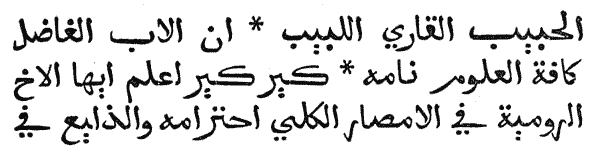 الحبيب القاري اللبيب * ان الاب الفاضل
كافة العلوم نامه * كير كير اعلم ايها الاخ
الرومية في الامصار الكلي احترامه والذايع في